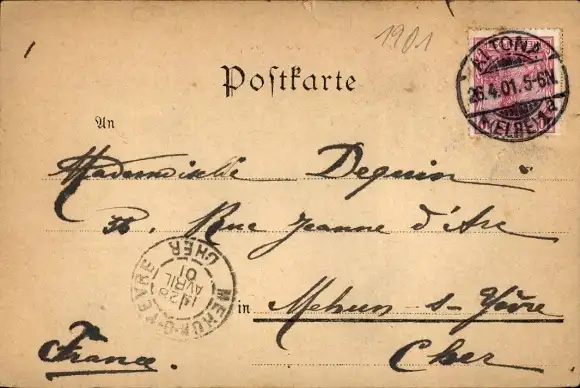 1901
ALTONA
26.4.01.5-6N.
*(ELBE)1a
Postkarte
An
Mademoiselle Dequin
38, Rue Jeanne d'Arc
in Mehun s- Yèvre
France. Cher
MEHUN-S-YEVRE
28
AVRIL
01
CHER